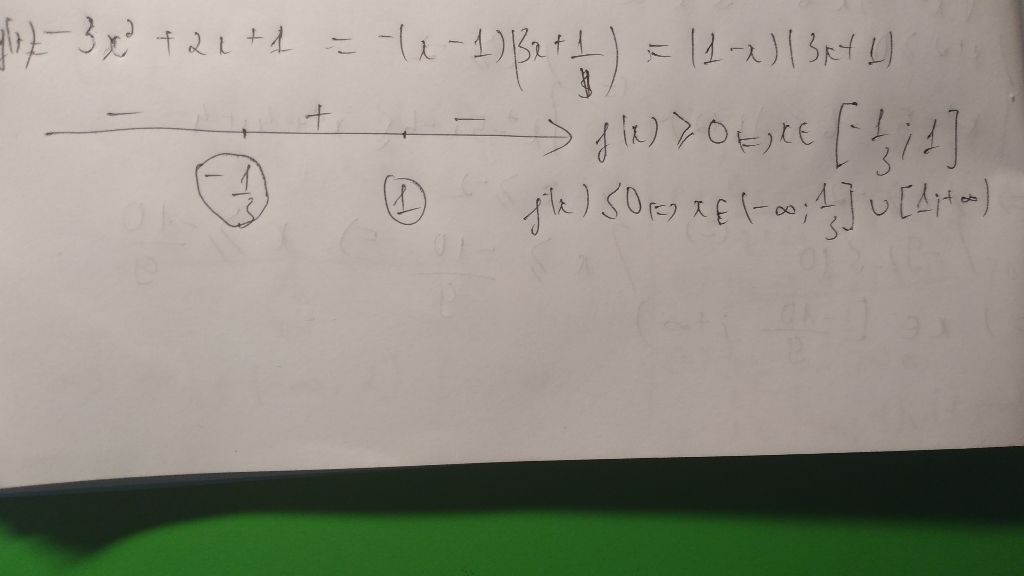 f(x)=-3x² + 2x + 1 = -(x - 1)(3x + 1/3) = (1-x)(3x+1)
- + - f(x) ⩾ 0 <=> x ∈ [-1/3 ; 1]
-1/3 1 f(x) ≤ 0 <=> x ∈ (-∞; 1/3] ∪ [1;+∞)